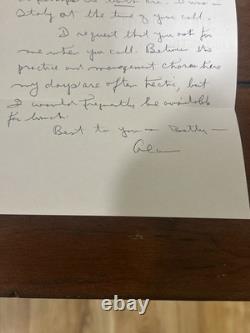 at the time of you call.
I request that you ask for
me when you call. Between the
practice and management chores here
my days are often hectic, but
I would frequently be available
for lunch.
Best to you
Alan
ebay